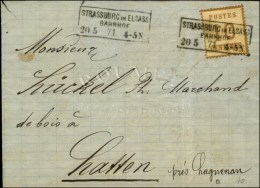 STRASSBURG IM ELSASS
BAHNHOF
20 5 71 4-5N
STRASSBURG IM ELSASS
BAHNHOF
20 5 4-5N
POSTES
Monsieur
Hückel Pt. Marchand
de bois à
Hatten
près Haguenau